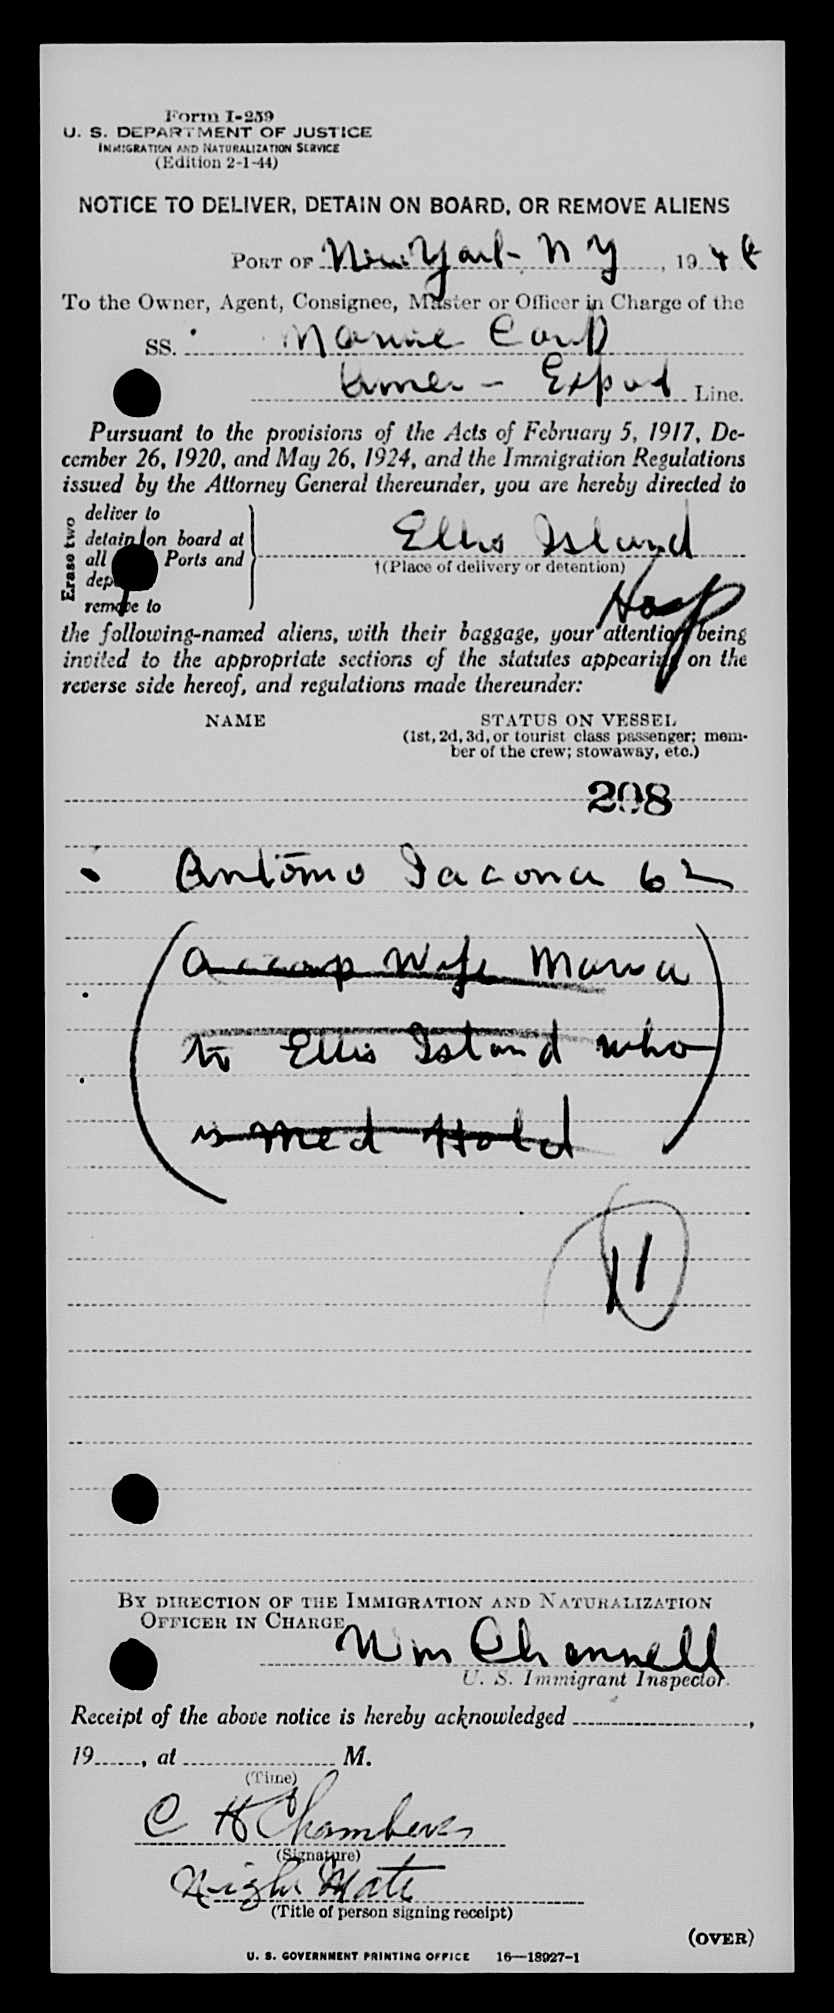 Form I-259
U. S. DEPARTMENT OF JUSTICE
IMMIGRATION AND NATURALIZATION SERVICE
(Edition 2-1-44)
NOTICE TO DELIVER, DETAIN ON BOARD, OR REMOVE ALIENS
PORT OF New York N Y, 19
To the Owner, Agent, Consignee, Master or Officer in Charge of the
SS. Marine Carp
Amer - Export Line.
Pursuant to the provisions of the Acts of February 5, 1917, De-
cember 26, 1920, and May 26, 1924, and the Immigration Regulations
issued by the Attorney General thereunder, you are hereby directed to
Erase two
deliver to
detain on board at
all Ports and
remove to
Ellis Island
†(Place of delivery or detention)
Hosp
the following-named aliens, with their baggage, your attention being
invited to the appropriate sections of the statutes appearing on the
reverse side hereof, and regulations made thereunder:
NAME STATUS ON VESSEL
(1st, 2d, 3d, or tourist class passenger; mem-
ber of the crew; stowaway, etc.)
208
Antonio Iacona 62
(Accomp Wife Maria
to Ellis Island who
is Med Hold)
11
BY DIRECTION OF THE IMMIGRATION AND NATURALIZATION
OFFICER IN CHARGE
Wm Channell
U. S. Immigrant Inspector.
Receipt of the above notice is hereby acknowledged ,
19 , at M.
(Time)
C H Chambers
(Signature)
Night Mate
(Title of person signing receipt)
(OVER)
U. S. GOVERNMENT PRINTING OFFICE 16—18927-1